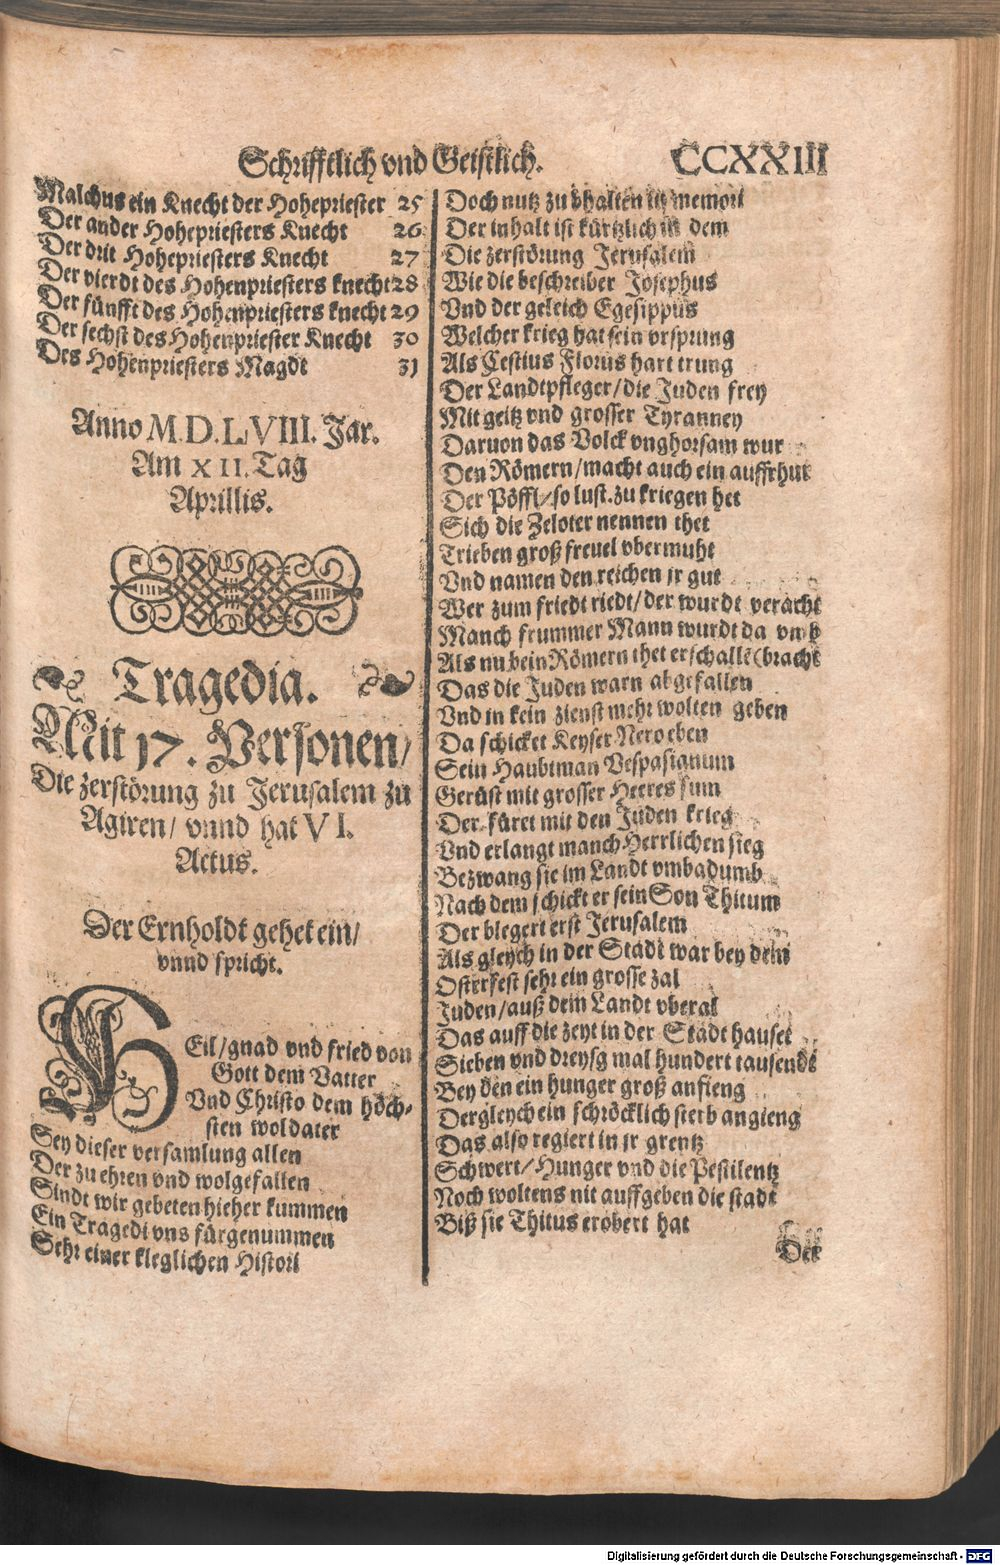 Schrifftlich vnd Geistlich. CCXXIII
Malchus ein Knecht der Hohepriester 25
Der ander Hohepriesters Knecht 26
Der drit Hohepriesters Knecht 27
Der vierdt des Hohenpriesters knecht 28
Der fünfft des Hohenpriesters knecht 29
Der sechst des Hohenpriester Knecht 30
Des Hohenpriesters Magdt 31
Anno M.D.LVIII. Jar.
Am XII. Tag
Aprillis.
Tragedia.
Mit 17. Personen/
Die zerstörung zu Jerusalem zu
Agiren/ vnnd hat VI.
Actus.
Der Ernholdt gehet ein/
vnnd spricht.
HEil/gnad vnd fried von
Gott dem Vatter
Vnd Christo dem höch-
sten woldater
Sey dieser versamlung allen
Der zu ehren vnd wolgefallen
Sindt wir gebeten hieher kummen
Ein Tragedi vns fürgenummen
Sehr einer kleglichen Histori
Doch nutz zu bhalten in memori
Der inhalt ist kürtzlich in dem
Die zerstörung Jerusalem
Wie die beschreiber Josephus
Vnd der geleich Egesippus
Welcher krieg hat sein vrsprung
Als Cestius Florus hart trung
Der Landtpfleger/die Juden frey
Mit geitz vnd grosser Tyranney
Daruon das Volck vnghorsam wur
Den Römern/macht auch ein auffrhut
Der Pöffl/so lust.zu kriegen het
Sich die Zeloter nennen thet
Trieben groß freuel vbermuht
Vnd namen den reichen jr gut
Wer zum friedt riedt/der wurdt veracht
Manch frummer Mann wurdt da vmb
Als nu bein Römern thet erschallē (bracht
Das die Juden warn abgefallen
Vnd in kein zienst mehr wolten geben
Da schicket Keyser Nero eben
Sein Haubtman Vespasianum
Gerüst mit grosser Heeres sum
Der füret mit den Juden krieg
Vnd erlangt manch Herrlichen sieg
Bezwang sie im Landt vmbadumb
Nach dem schickt er sein Son Thitum
Der blegert erst Jerusalem
Als gleych in der Stadt war bey dem
Osterfest sehr ein grosse zal
Juden/auß dem Landt vberal
Das auff die zeyt in der Stadt hauset
Sieben vnd dreysg mal hundert tausendt
Bey den ein hunger groß anfieng
Dergleych ein schröcklich sterb angieng
Das also regiert in jr grentz
Schwert/Hunger vnd die Pestilentz
Noch woltens nit auffgeben die stadt
Biß sie Thitus erobert hat
Der
Digitalisierung gefördert durch die Deutsche Forschungsgemeinschaft - DFG